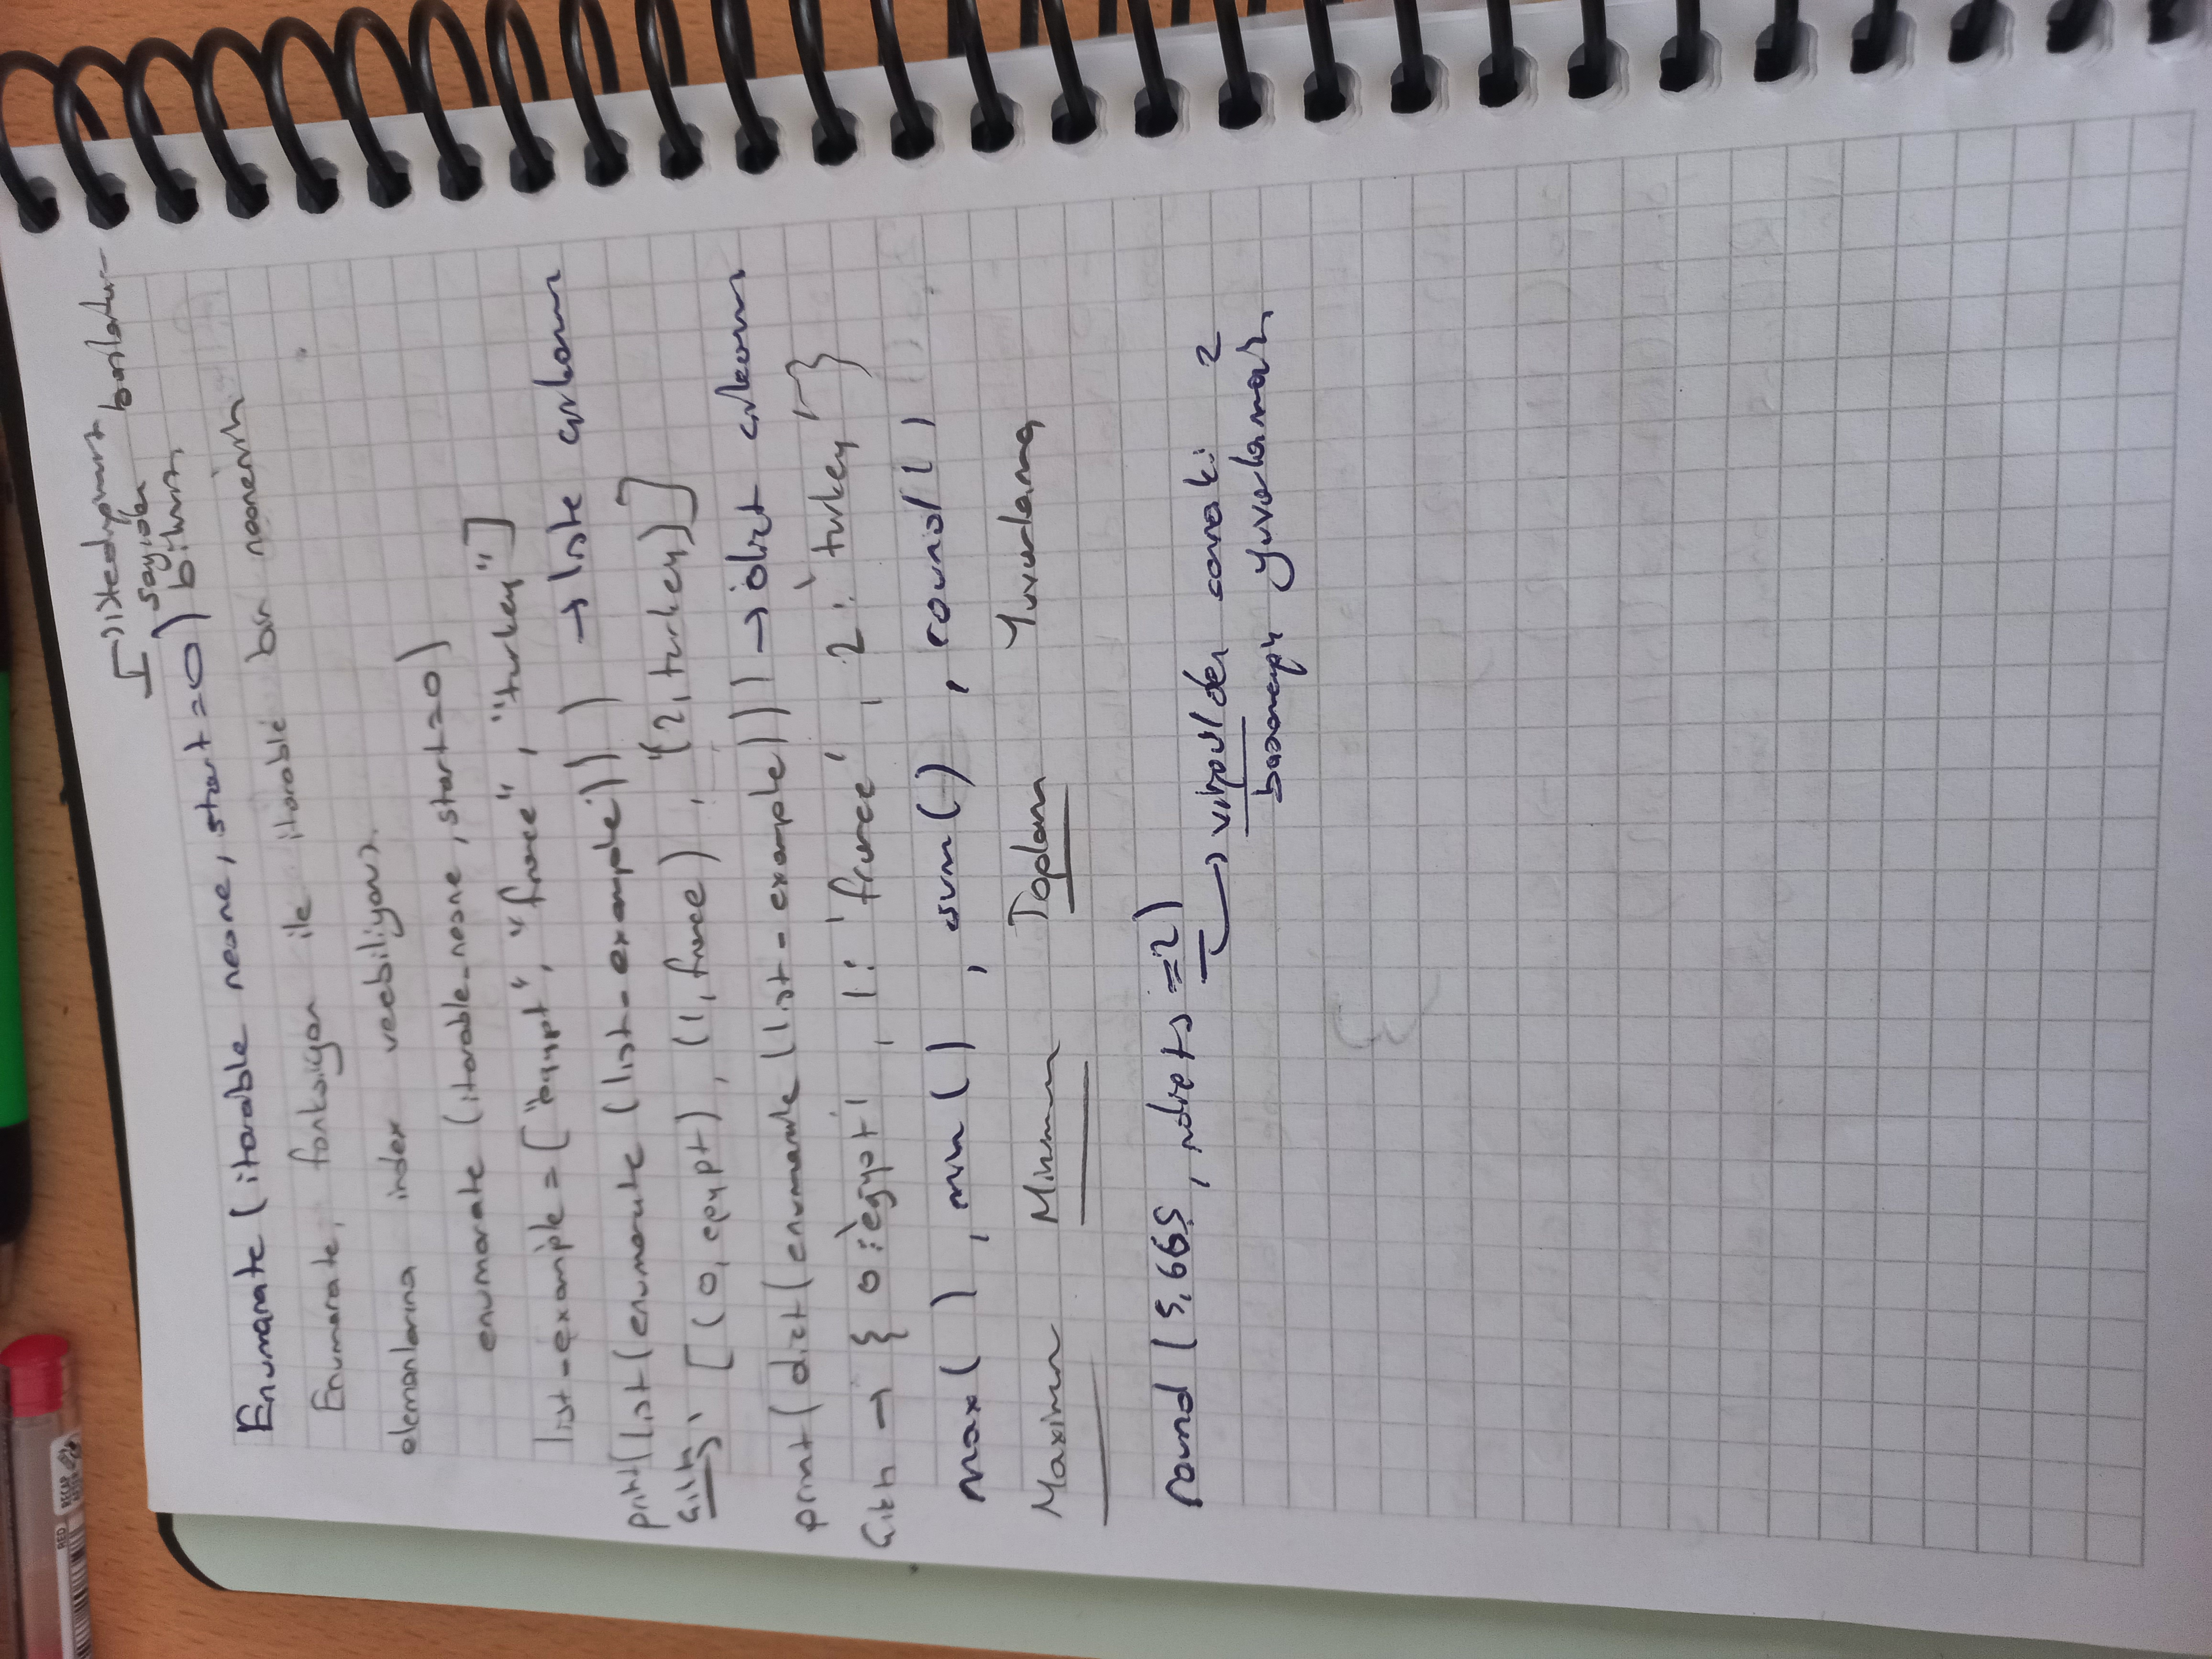 RED
RECAP AFTER
istediğimiz
sayıdan başlata-
biliriz
Enumarate (iterable nesne, start=0)
Enumarate, fonksiyon ile iterable bir nesnenin
elemanlarına index verebiliyoruz.
enumarate (iterable_nesne, start=0)
list-example = ["egypt", "france", "turkey"]
print(list(enumarate (list-example))) → liste
Çıktı: [(0, egypt), (1, france), (2, turkey)]
print(dict(enumarate (list-example))) → dict
Çıktı → { 0:'egypt', 1: 'france', 2: 'turkey' }
max( ), min( ), sum( ), round( )
Maximum Minimum Toplam Yuvarlama
round (5,665, =2)
virgülden sonraki 2
basamağı yuvarlamak